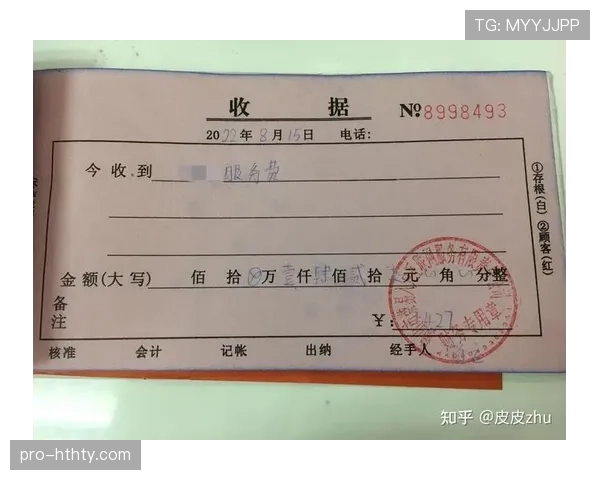 TG: MYYJJPP
收 据 № 8998493
2022年8月15日 电话:
今收到 服务费
①存根(白) ②顾客(红)
金额(大写) 佰 拾⊗万壹仟肆佰贰拾 元 角 分整
备注 ¥: 1427
财务专用章
核准 会计 记帐 出纳 经手人
知乎 @皮皮zhu
pro-hthty.com